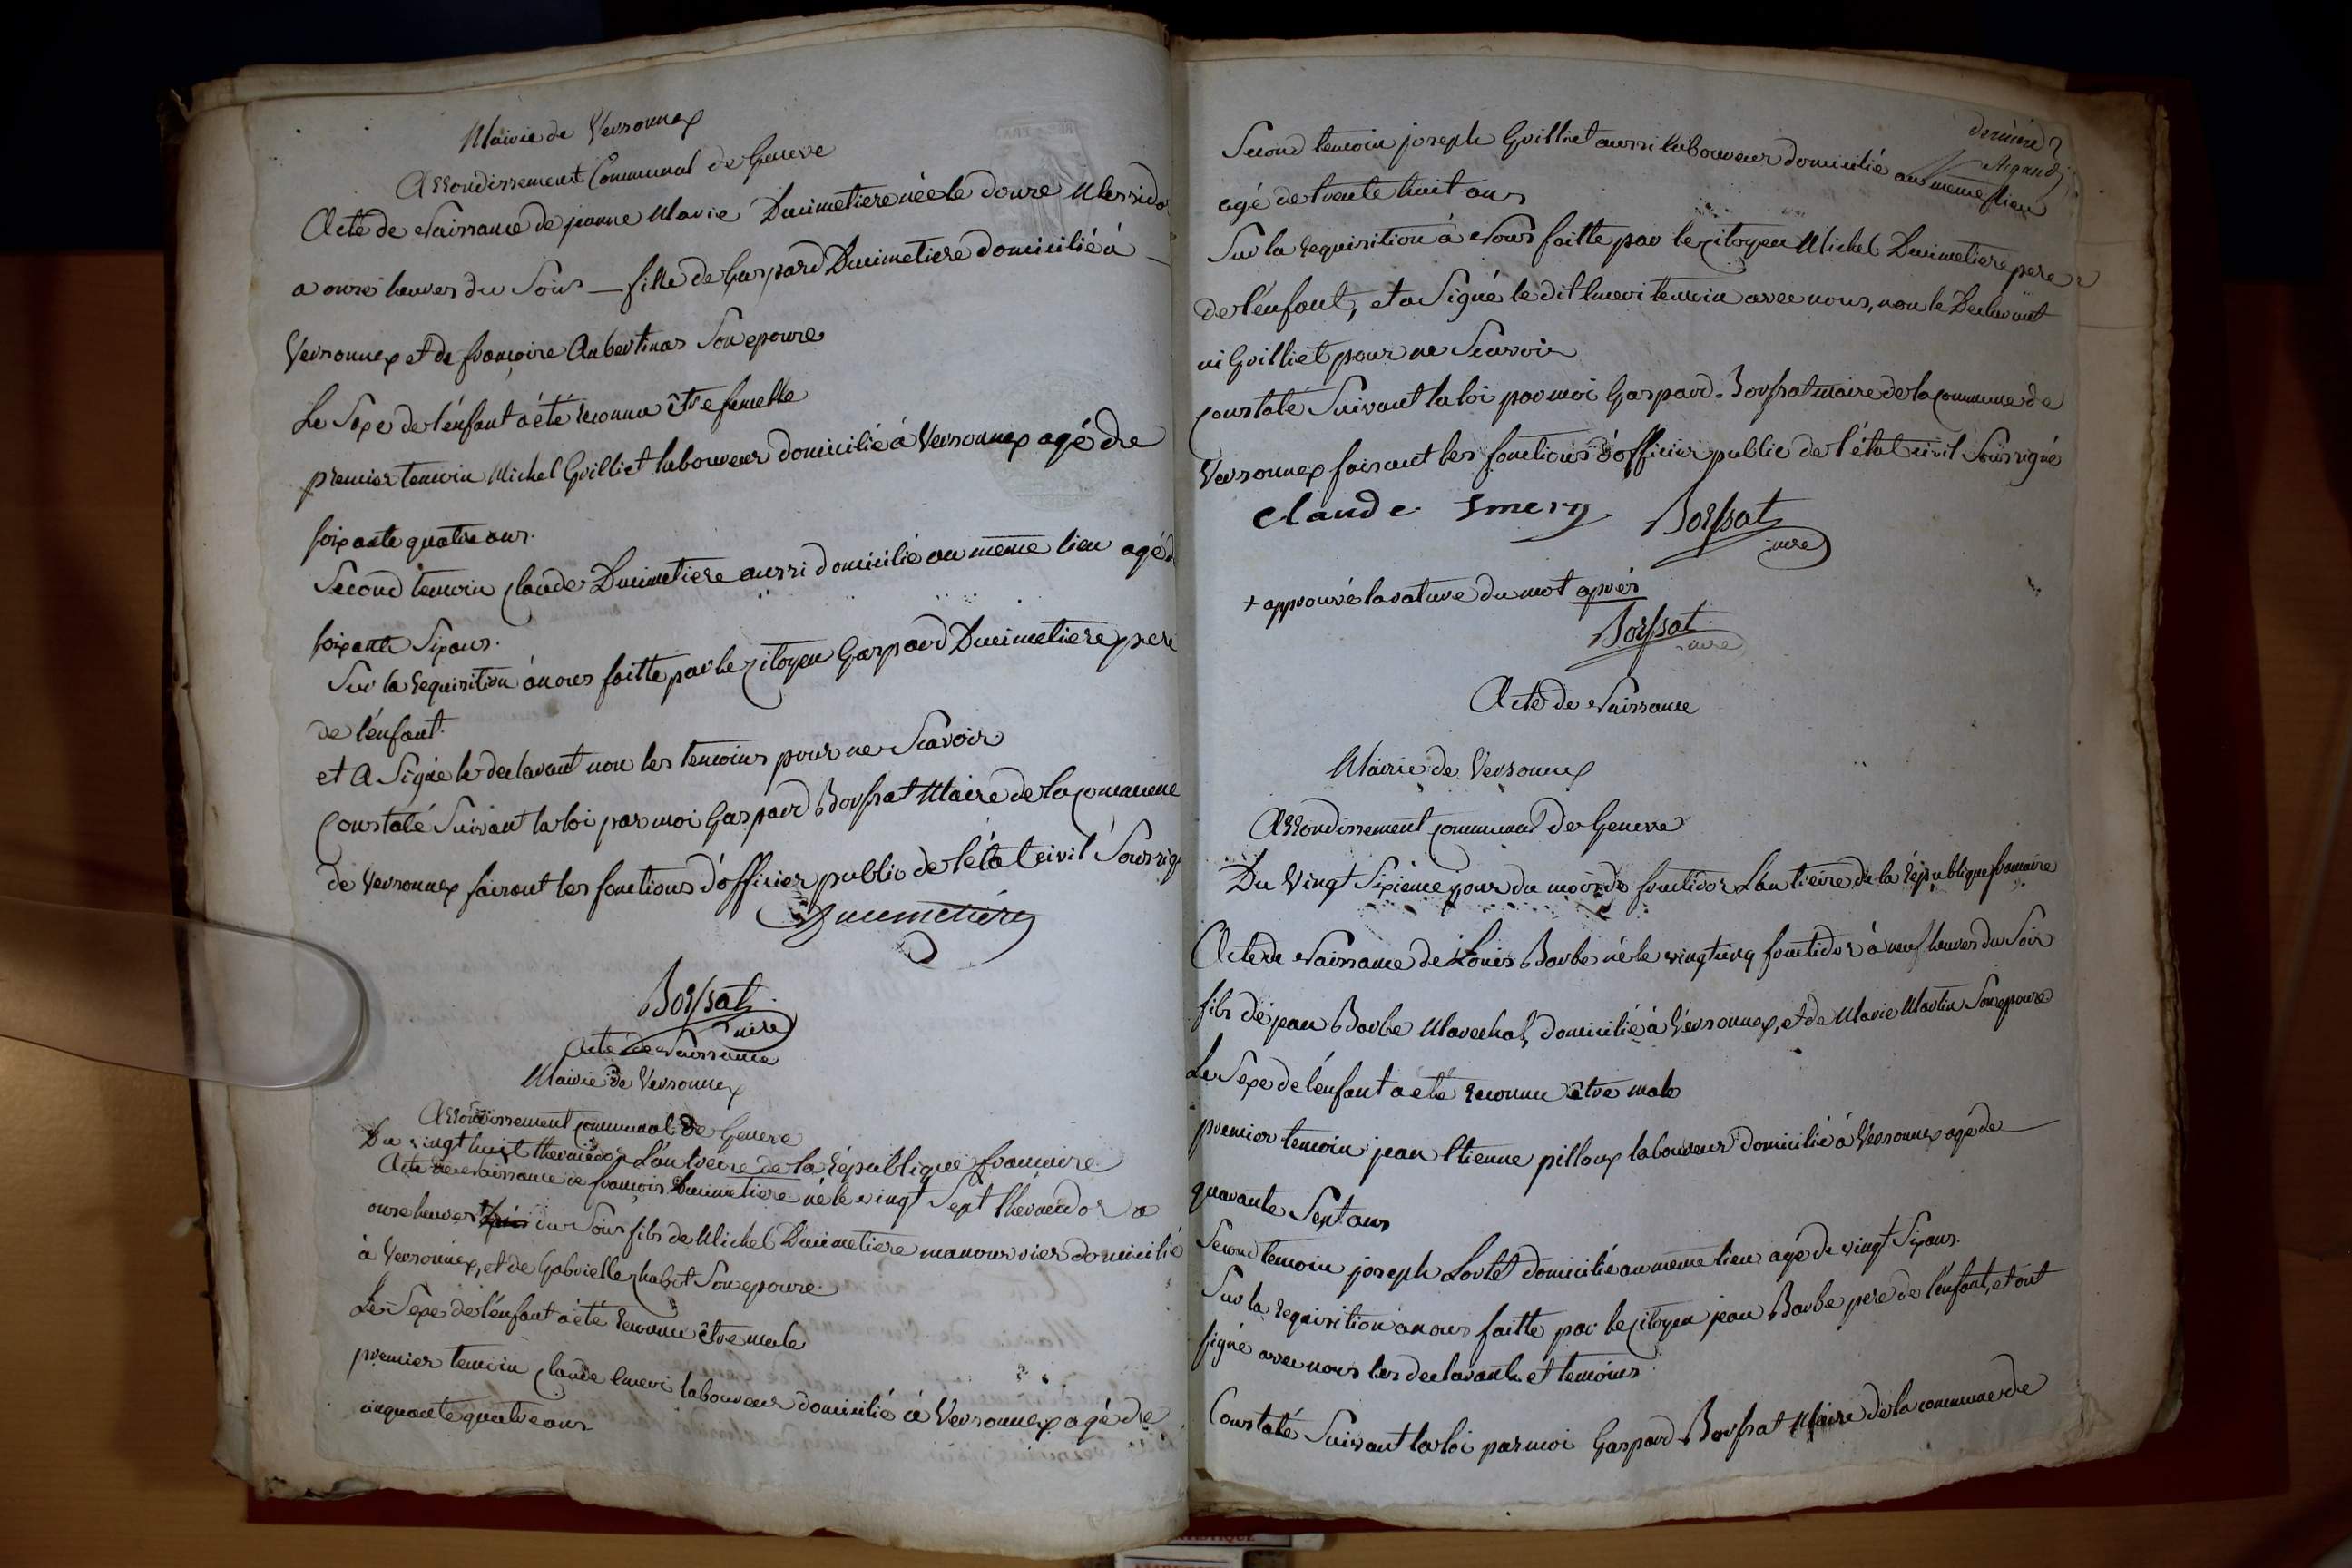 Mairie de Versonnex
Arrondissement Communal de Geneve
Acte de Naissance de jeanne Marie Ducimetiere née le douze Messido
a onze heures du Soir — fille de Gaspard Ducimetiere domicilié à —
Versonnex et de françoise Aubertinas Son epouse
Le Sexe de l'énfant a été reconnu être femelle
premier temoin Michel Grilliet laboureur domicilié à Versonnex agé de
soixante quatre ans.
Second temoin Claude Ducimetiere aussi domicilié au même lieu agé d
soixante Six ans.
Sur la requisition à nous faitte par le Citoyen Gaspard Ducimetiere pere
de l'énfant.
et a Signé le declarant non les temoins pour ne Scavoir
Constaté Suivant la loi par moi Gaspard Borssat Maire de la Commune
de Versonnex faisant les fonctions d'officier public de l'état civil Soussig
Ducimetiere
Borssat
mire
Acte de Naissance
Mairie de Versonnex
Arrondissement communal de Geneve
Du vingt huit thermidor L'an treize de la République francaise
Acte de naissance de françois Ducimetiere né le vingt Sept thérmidor a
onze heures après du Soir fils de Michel Ducimetiere manouvrier domicilié
à Versonnex, et de Gabrielle Chabot Son epouse.
Le Sexe de l'énfant a été reconnu être male
premier temoin Claude Emeri laboureur domicilié à Versonnex agé de
cinquante quatre ans
Second temoin joseph Grilliet aussi laboureur domicilié au même lieu
agé de trente huit ans
Sur la requisition à Nous faitte par le citoyen Michel Ducimetiere pere
de l'énfant, et a Signé le dit Emeri temoin avec nous, non le Declarant
ni Grilliet pour ne Scavoir
Constaté Suivant la loi par moi Gaspard Borssat maire de la Commune de
Versonnex faisant les fonctions d'officier public de l'état civil Soussigné
Claude Emery Borssat
mire
+ approuvé la rature du mot après
Borssat
mire
Acte de Naissance
Mairie de Versonnex
Arrondissement communal de Geneve
Du Vingt Sixieme jour du mois de fructidor L'an treize de la République francaise
Acte de Naissance de Louis Barbe né le vingt cinq fructidor à neuf heures du Soir
fils de jean Barbe Marechal, domicilié à Versonnex, et de Marie Martin Son epouse
Le Sexe de l'énfant a eté reconnu etre male
premier temoin jean Etienne pilloux laboureur domicilié à Versonnex agé de —
quarante Sept ans
Second temoin joseph Lortet domicilié au meme lieu agé de vingt Six ans.
Sur la requisition à nous faitte par le citoyen jean Barbe pere de l'énfant, et ont
signé avec nous les declarants et temoins
Constaté Suivant la loi par moi Gaspard Borssat Maire de la commune de